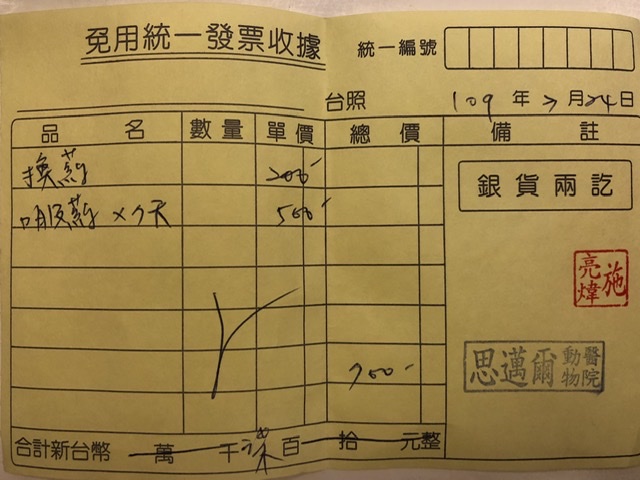 免用統一發票收據
統一編號
台照
109年2月24日
品名 數量 單價 總價 備註
換藥 200-
銀貨兩訖
口服藥 ×7天 500-
施亮煒
思邁爾動物醫院
700-
合計新台幣 萬 千 柒 百 拾 元整